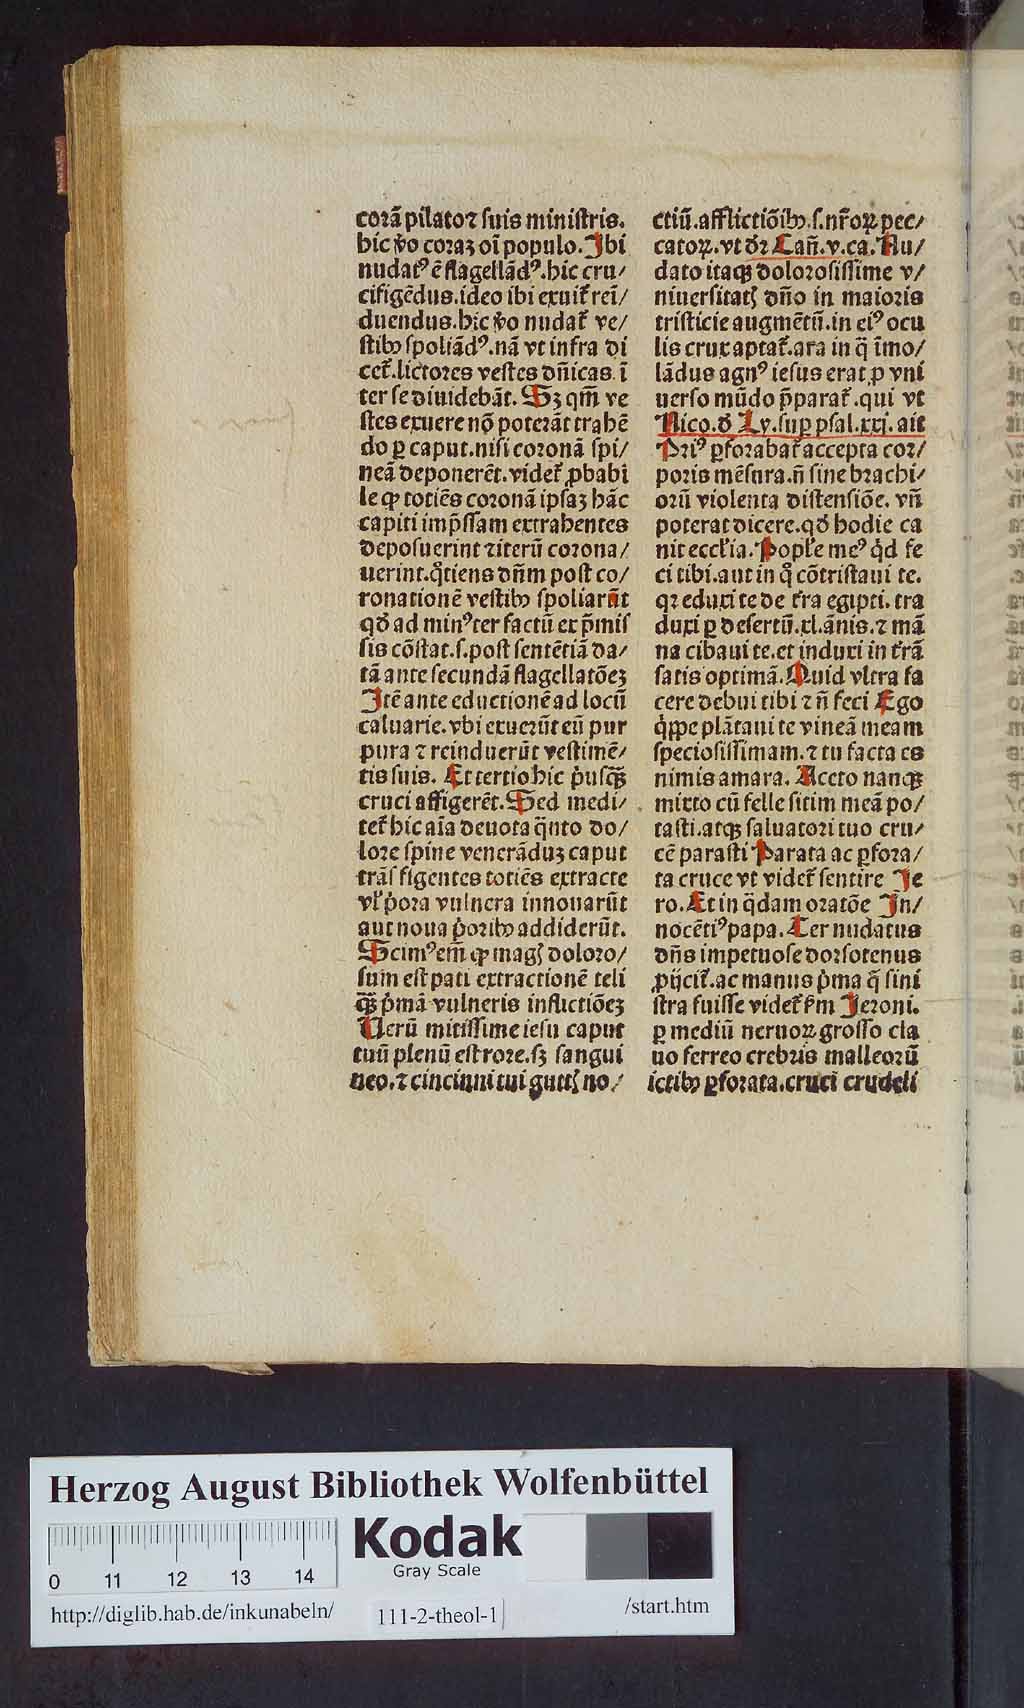 corā pilato ⁊ suis ministris.
hic ꝟo coraꝫ oī populo. Ibi
nudatꝰ ē flagellādꝰ. hic cru/
cifigēdus. ideo ibi exuit̄ reī/
duendus. hic ꝟo nudat̄ ve/
stibꝰ spoliādꝰ. nā vt infra di
cet̄. lictores vestes dn̄icas ī
ter se diuidebāt. Sꝫ qm̄ ve
stes exuere nō poterāt trahē
do ꝑ caput. nisi coronā spi/
neā deponerēt. videt̄ ꝓbabi
le ꝙ totiēs coronā ipsaꝫ hāc
capiti imp̄ssam extrahentes
deposuerint ⁊ iterū corona/
uerint. q̊tiens dn̄m post co/
ronationē vestibꝰ spoliarūt
qd̄ ad minꝰ ter factū ex p̄mis
sis cōstat. s. post sentētiā da/
tā ante secundā flagellatōeꝫ
Itē ante eductionē ad locū
caluarie. vbi exuerūt eū pur
pura ⁊ reinduerūt vestimē/
tis suis. Et tertio hic p̓usqꝫ̄
cruci affigerēt. Sed medi/
tet̄ hic aīa deuota q̄nto do/
lore spine venerāduꝫ caput
trās figentes totiēs extracte
vl̓ p̓ora vulnera innouarūt
aut noua p̓oribꝰ addiderūt.
Scimꝰ em̄ ꝙ magꝭ doloro/
sum est pati extractionē teli
qꝫ̄ p̓mā vulneris inflictiōeꝫ
Uerū mitissime iesu caput
tuū plenū est rore. sꝫ sangui
neo. ⁊ cincinni tui guttꝭ no/
ctiū. afflictiōibꝰ. s. nr̄oꝝ pec/
catoꝝ. vt dr̄ Cañ. v. ca. Nu/
dato itaqꝫ dolorosissime v/
niuersitatꝭ dn̄o in maioris
tristicie augmētū. in eiꝰ ocu
lis crux aptat̄. ara in q̄ īmo/
lādus agnꝰ iesus erat ꝓ vni
uerso mūdo p̄parat̄. qui vt
Nico. đ Ly. suꝑ psal. xxj. ait
Priꝰ ꝑforabat̄ accepta cor/
poris mēsura. n̄ sine brachi/
orū violenta distensiōe. vn̄
poterat dicere. qđ hodie ca
nit eccl̓ia. Popl̓e meꝰ q̓d fe
ci tibi. aut in q̊ cōtristaui te.
qꝛ eduxi te de t̓ra egipti. tra
duxi ꝑ desertū. xl. ānis. ⁊ mā
na cibaui te. et induxi in t̓rā
satis optimā. Quid vltra fa
cere debui tibi ⁊ n̄ feci Ego
q̓ꝑpe plātaui te vineā meam
speciosissimam. ⁊ tu facta es
nimis amara. Aceto nanqꝫ
mixto cū felle sitim meā po/
tasti. atqꝫ saluatori tuo cru/
cē parasti Parata ac ꝑfora/
ta cruce vt videt̄ sentire Je
ro. Et in q̄dam oratōe In/
nocētiꝰ papa. Ter nudatus
dn̄s impetuose dorsotenus
ꝓijcit̄. ac manus p̓ma q̄ sini
stra fuisse videt̄ f̓m Jeroni.
ꝑ mediū neruoꝝ grosso cla
uo ferreo crebris malleorū
ictibꝰ ꝑforata. cruci crudeli
Herzog August Bibliothek Wolfenbüttel
Kodak
Gray Scale
0 11 12 13 14
http://diglib.hab.de/inkunabeln/
111-2-theol-1
/start.htm